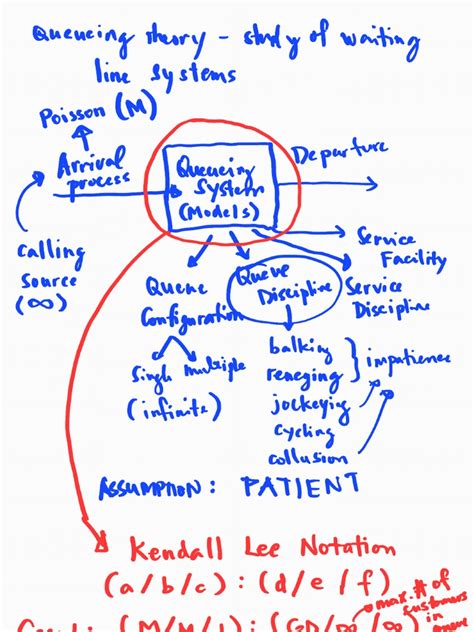 Queueing theory - study of waiting
line systems
Poisson (M)
Arrival
process
Queueing
System
(Models)
Departure
Calling
Source
(∞)
Service
Facility
Queue
Configuration
Queue
Discipline
Service
Discipline
Single Multiple
(infinite)
balking
reneging
jockeying
cycling
collusion
impatience
ASSUMPTION: PATIENT
Kendall Lee Notation
(a/b/c) : (d/e/f)
max. # of
customers
in
(M/M/1) : (GD/∞/∞)